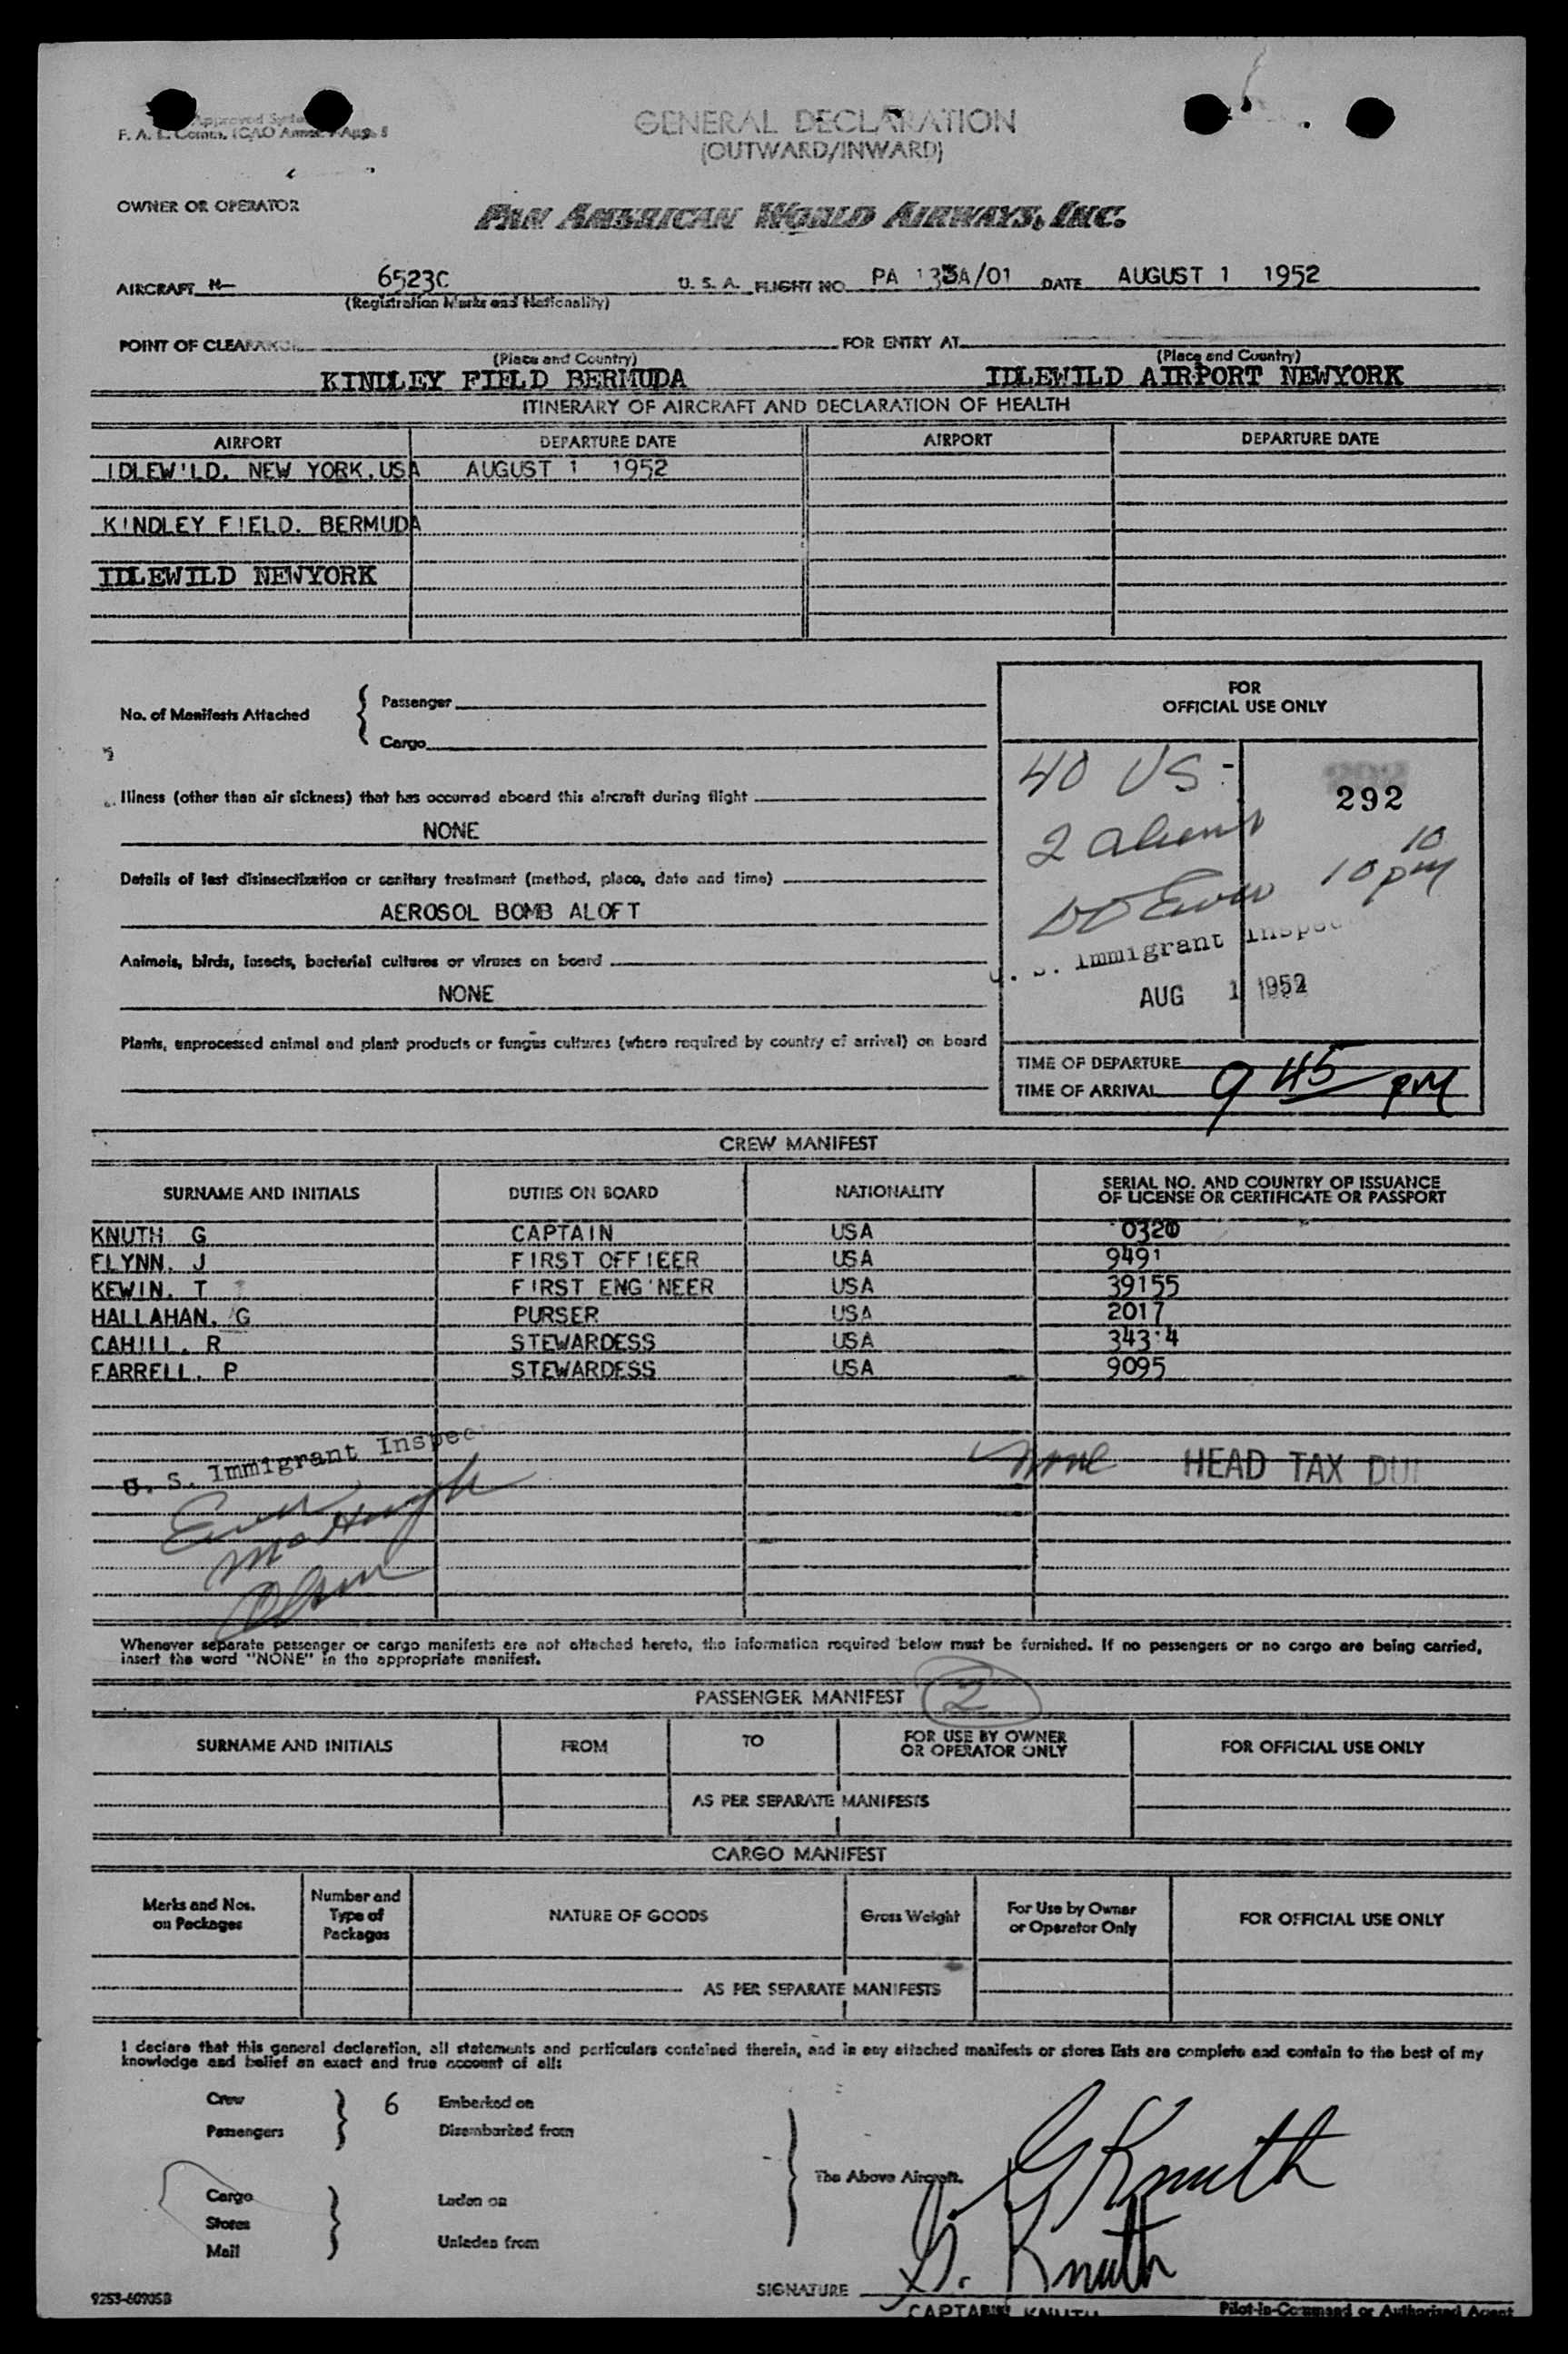 Approved
F. A. L. Comm. ICAO Annex 9 App. 5
GENERAL DECLARATION
(OUTWARD/INWARD)
OWNER OR OPERATOR
PAN AMERICAN WORLD AIRWAYS, INC.
AIRCRAFT N- 6523C U. S. A. FLIGHT NO. PA 133A/01 DATE AUGUST 1 1952
(Registration Marks and Nationality)
POINT OF CLEARANCE FOR ENTRY AT
(Place and Country) (Place and Country)
KINDLEY FIELD BERMUDA IDLEWILD AIRPORT NEWYORK
ITINERARY OF AIRCRAFT AND DECLARATION OF HEALTH
AIRPORT DEPARTURE DATE AIRPORT DEPARTURE DATE
IDLEW'LD. NEW YORK.USA AUGUST 1 1952
K'NDLEY F'ELD. BERMUDA
IDLEWILD NEWYORK
No. of Manifests Attached { Passenger
Cargo
Illness (other than air sickness) that has occurred aboard this aircraft during flight
NONE
Details of last disinsectization or sanitary treatment (method, place, date and time)
AEROSOL BOMB ALOFT
Animals, birds, insects, bacterial cultures or viruses on board
NONE
Plants, unprocessed animal and plant products or fungus cultures (where required by country of arrival) on board
FOR
OFFICIAL USE ONLY
40 US -
292
2 aliens
10
10 pm
U. S. Immigrant Inspec
AUG 1 1952
TIME OF DEPARTURE
TIME OF ARRIVAL 9 45 PM
CREW MANIFEST
SURNAME AND INITIALS DUTIES ON BOARD NATIONALITY SERIAL NO. AND COUNTRY OF ISSUANCE
OF LICENSE OR CERTIFICATE OR PASSPORT
KNUTH G CAPTAIN USA 0320
FLYNN. J FIRST OFFIEER USA 9491
KEWIN. T F'RST ENG'NEER USA 39155
HALLAHAN. G PURSER USA 2017
CAHILL. R STEWARDESS USA 343'4
FARRELL. P STEWARDESS USA 9095
U. S. Immigrant Inspec
none HEAD TAX DUE
McHugh
Olson
Whenever separate passenger or cargo manifests are not attached hereto, the information required below must be furnished. If no passengers or no cargo are being carried,
insert the word "NONE" in the appropriate manifest.
PASSENGER MANIFEST 2
SURNAME AND INITIALS FROM TO FOR USE BY OWNER
OR OPERATOR ONLY FOR OFFICIAL USE ONLY
AS PER SEPARATE MANIFESTS
CARGO MANIFEST
Marks and Nos.
on Packages Number and
Type of
Packages NATURE OF GOODS Gross Weight For Use by Owner
or Operator Only FOR OFFICIAL USE ONLY
AS PER SEPARATE MANIFESTS
I declare that this general declaration, all statements and particulars contained therein, and in any attached manifests or stores lists are complete and contain to the best of my
knowledge and belief an exact and true account of all:
Crew } 6 Embarked on
Passengers Disembarked from
The Above Aircraft.
Cargo } Laden on
Stores
Mail Unladen from
G Knuth
G. Knuth
SIGNATURE
CAPTAIN KNUTH Pilot-in-Command or Authorized Agent
9253-60905B